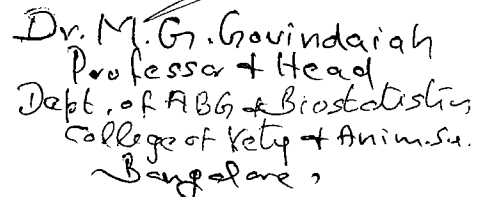 Dr. M. G. Govindaiah
Professor & Head
Dept. of ABG & Biostatistics,
College of Vety & Anim. Sci.
Bangalore,